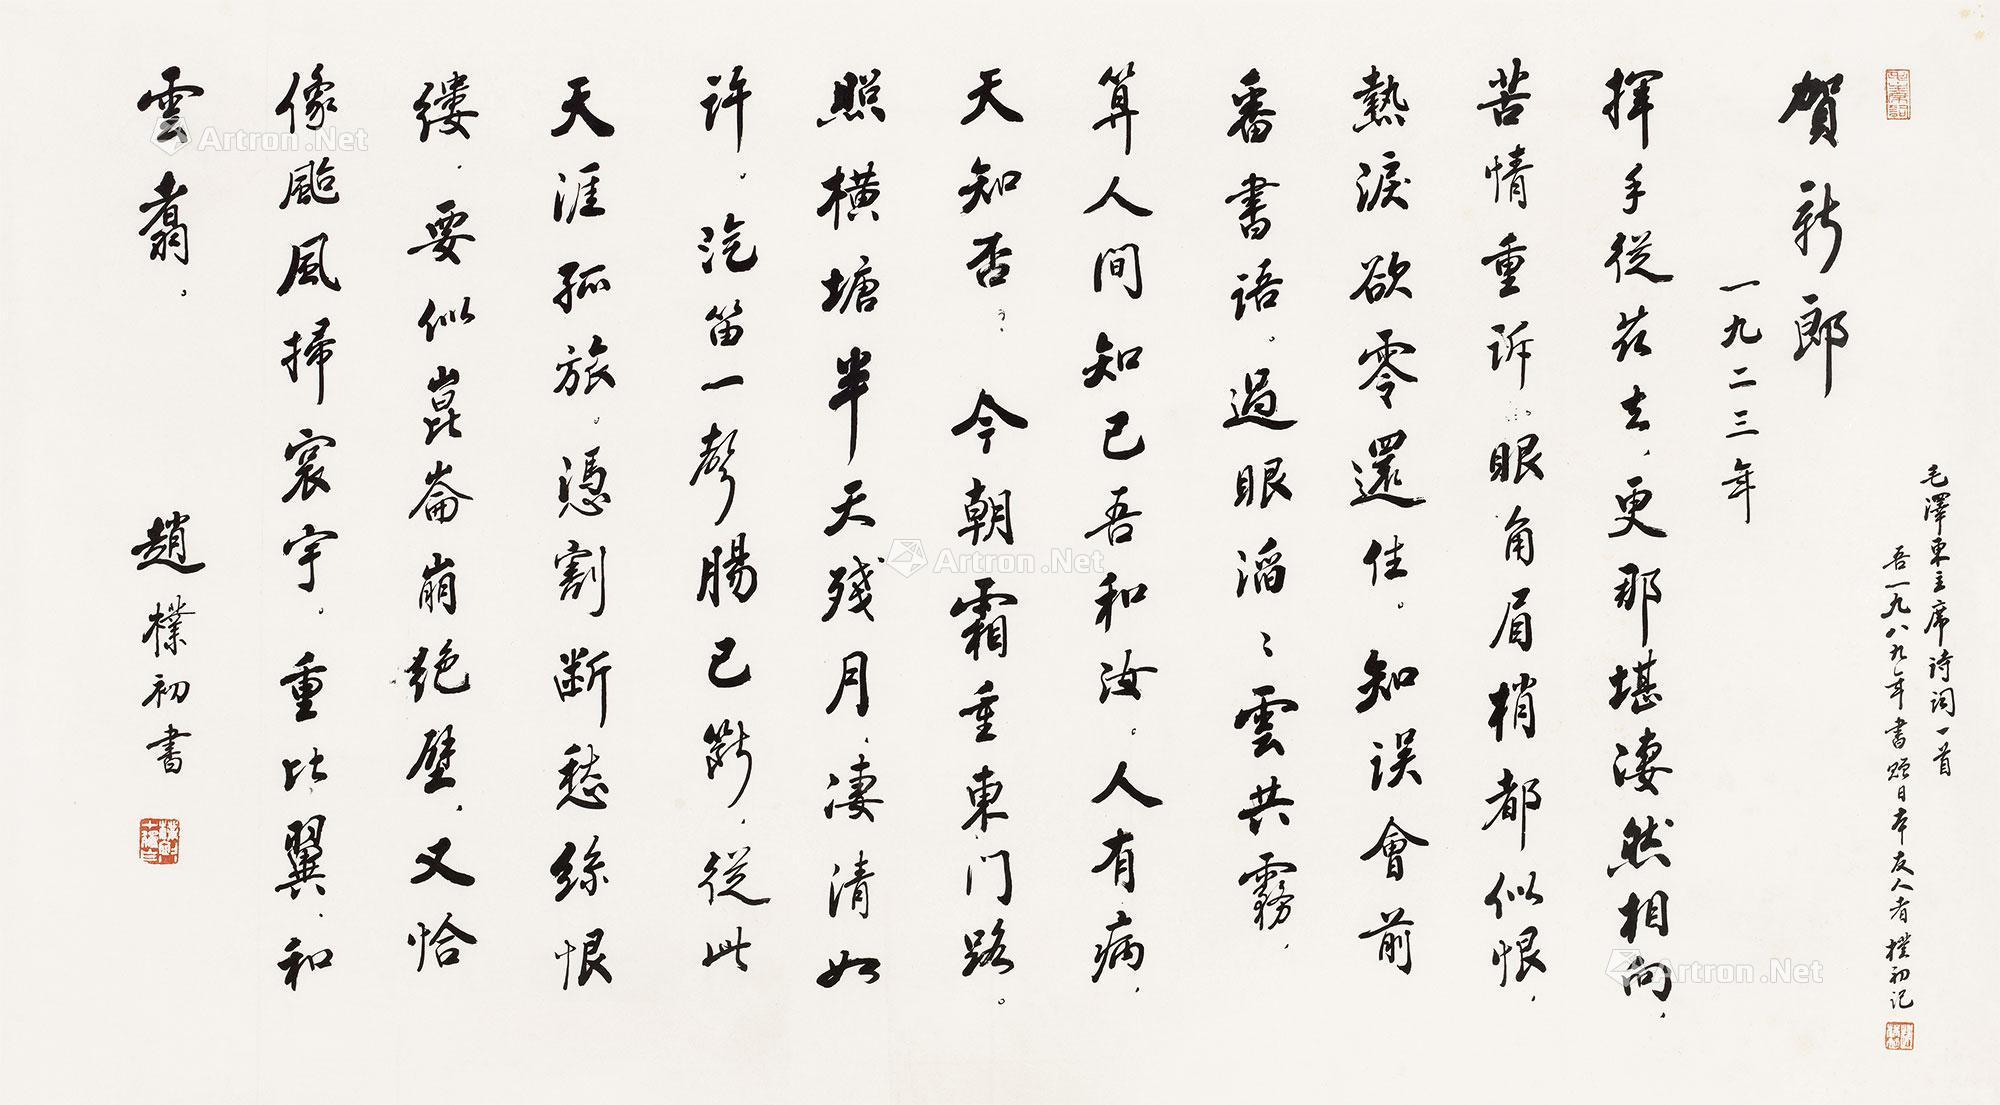 毛澤东主席诗词一首
吾一九八九年書贈日本友人者 樸初记
賀新郎
一九二三年
揮手從茲去，更那堪淒然相向，
苦情重訴。眼角眉梢都似恨，
熱淚欲零還住。知误會前
番書語。過眼滔〻雲共霧，
算人間知己吾和汝。人有病，
天知否？今朝霜重東门路。
照橫塘半天殘月，淒清如
许。汽笛一聲腸已斷，從此
天涯孤旅。憑割斷愁絲恨
缕。要似崑崙崩绝壁，又恰
像颱風掃寰宇。重比翼，和
雲翥。
趙樸初書
Artron.Net
Artron.Net
Artron.Net